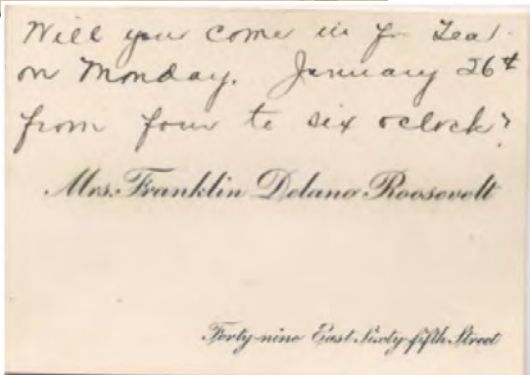 Will you come in for Tea
on Monday. January 26th
from four to six oclock?
Mrs. Franklin Delano Roosevelt
Forty-nine East Sixty-fifth Street